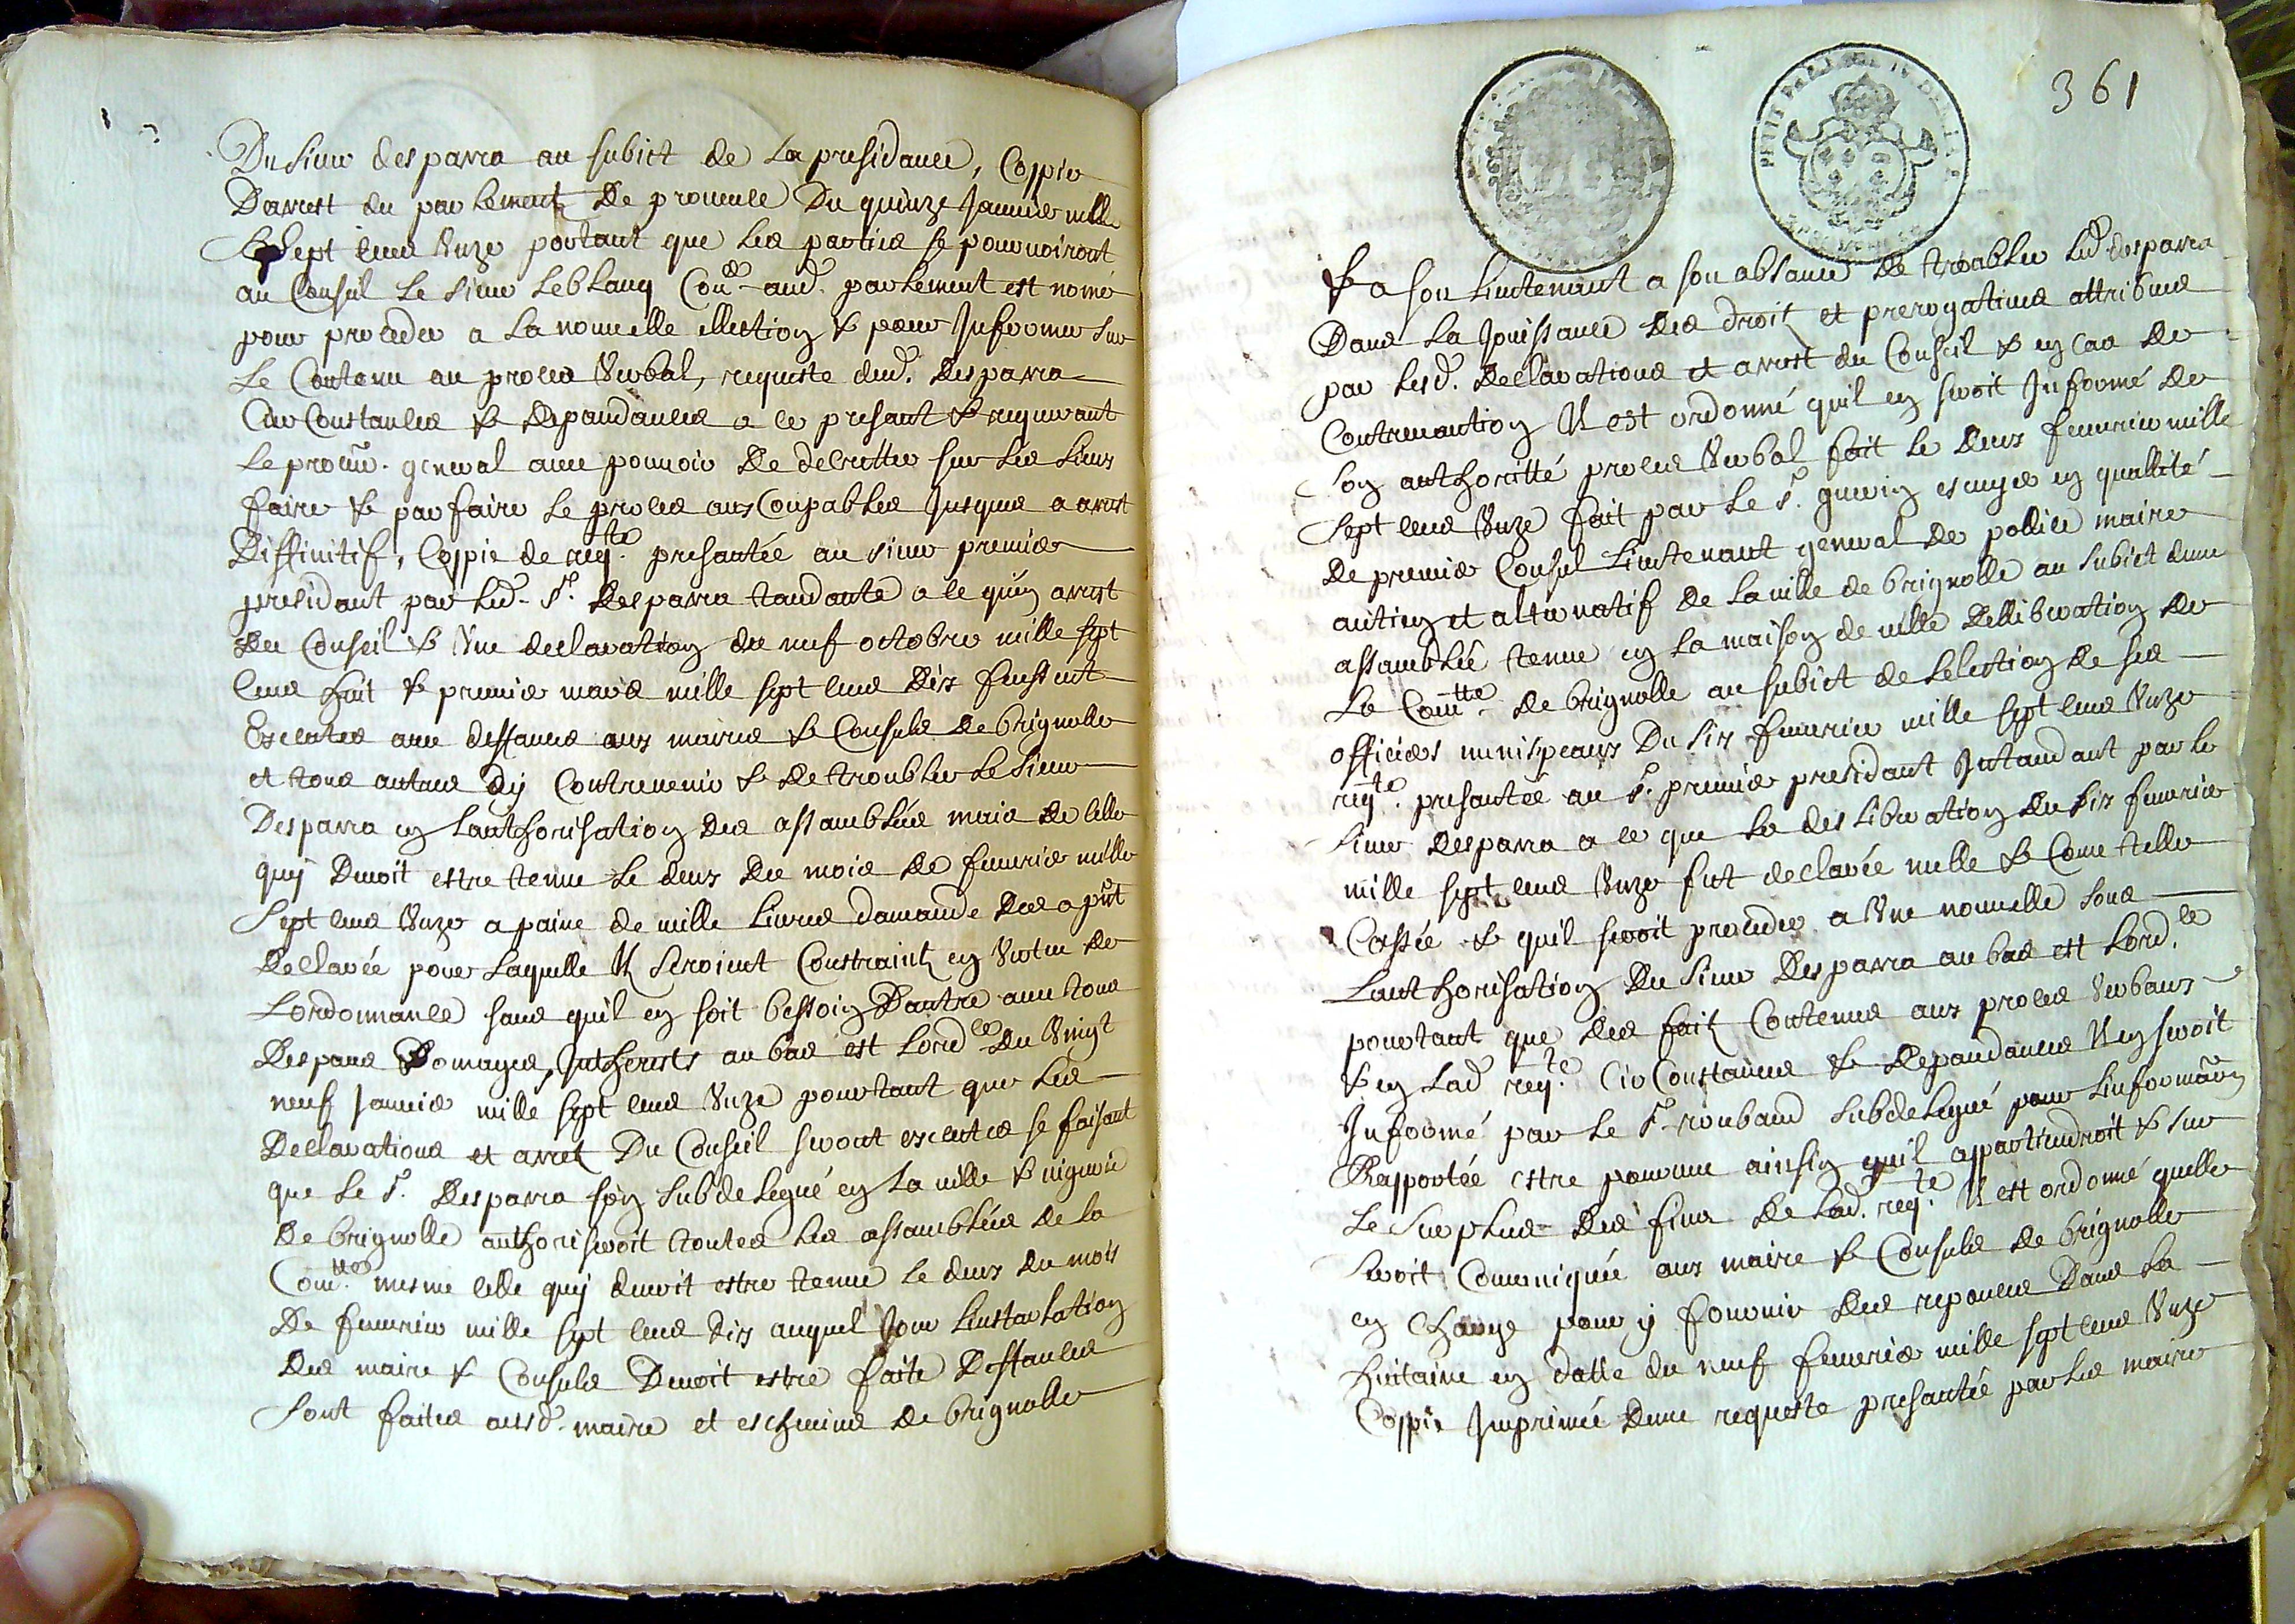 Du sieur desparra au subiet de la presidance, Coppie
Darrest du parlement De prouence Du quinze Januier mille
Sept cens Vnze portant que les parties se pouruoiront
au Conseil le sieur leblanq Con.er aud. parlement est nomé
pour proceder a la nouuelle ellection & pour Informer sur
le Contenu au proces Verbal, requeste dud. Desparra
Circonstances & Depandances a ce presant & requerant
le procur. general auec pouuoir De decretter sur les lieux
faire & parfaire le proces aux Coupables Jusques a arrest
Diffinitif, Coppie de req.te presantée au sieur premier
presidant par led. Sr. Desparra tandante a ce quun arrest
du Conseil & Vne declaration du neuf octobre mille sept
cens huit & premier mars mille sept cens Dix fussent
Executes auec deffances aux maires & Consuls De brignolle
et tous autres dy Contreuenir & De troubler le sieur
Desparra en lauthorisation des assamblées mais De celle
quy Deuoit estre tenue le deux du mois De feurier mille
Sept cens Vnze a paine de mille liures damande Des a pnt
Declarée pour laquelle Il seroient Constraintz en Vertu de
Lordonnance sans quil en soit bessoin Dautre auec tous
Despans Domages, Intherests au bas est lord.ce Du Vingt
neuf Januier mille sept cens Vnze pourtant que les
Declarations et arretz Du Conseil seront executes se faisant
que le Sr. Desparra son subdelegué en la ville & viguerie
De brignolle authoriseroit toutes les assamblées de la
Com.tté mesme celle quy deuoit estre tenue le deux du mois
De feurier mille sept cens dix auquel Jour linstalation
des maire & Consuls Deuoit estre faite Deffances
sont faites ausd. maire et escheuins de brignolle
361
& a son lieutenant a son absance De troubler led. desparra
Dans la Jouissance des droitz et prerogatiues attribues
par lesd. Declarations et arrest du Conseil & en cas De
Contrauantion Il est ordonné quil en seroit Informé De
son authoritté proces Verbal fait le deux feurier mille
Sept cens Vnze fait par le Sr. guerin escuyer en quallité
De premier Consul lieutenant general De police maire
antien et alternatif De la ville de brignolle au subiet dune
assamblée tenue en la maison de ville Dellibération De
la Com.tté De brignolle au subiet de lelection de ses
officiers munispeaux Du six feurier mille sept cens Vnze
req.te presantée au Sr. premier presidant Intandant par le
sieur Desparra a ce que la desliberation du six feurier
mille sept cens Vnze fut declarée nulle & Come telle
Cassée & quil seroit proceder a Vne nouuelle sous
Lauthorisation Du sieur Desparra au bas est lord.ce
pourtant que des faitz Contenus aux proces Verbaux
& en lad. req.te Circonstances & Depandances Il en seroit
Informé par le Sr. roubaud subdelegué pour linformaõn
Rapportée estre pourueu ainsin quil appartiendroit & sur
le surplus des fins de lad. req.te Il est ordonné quelle
seroit Comuniquée aux maire & Consuls De brignolle
en charge pour y fournir des reponces Dans la
huitaine en datte du neuf feurier mille sept cens Vnze
Coppie Imprimée dune requeste presantée par les maire